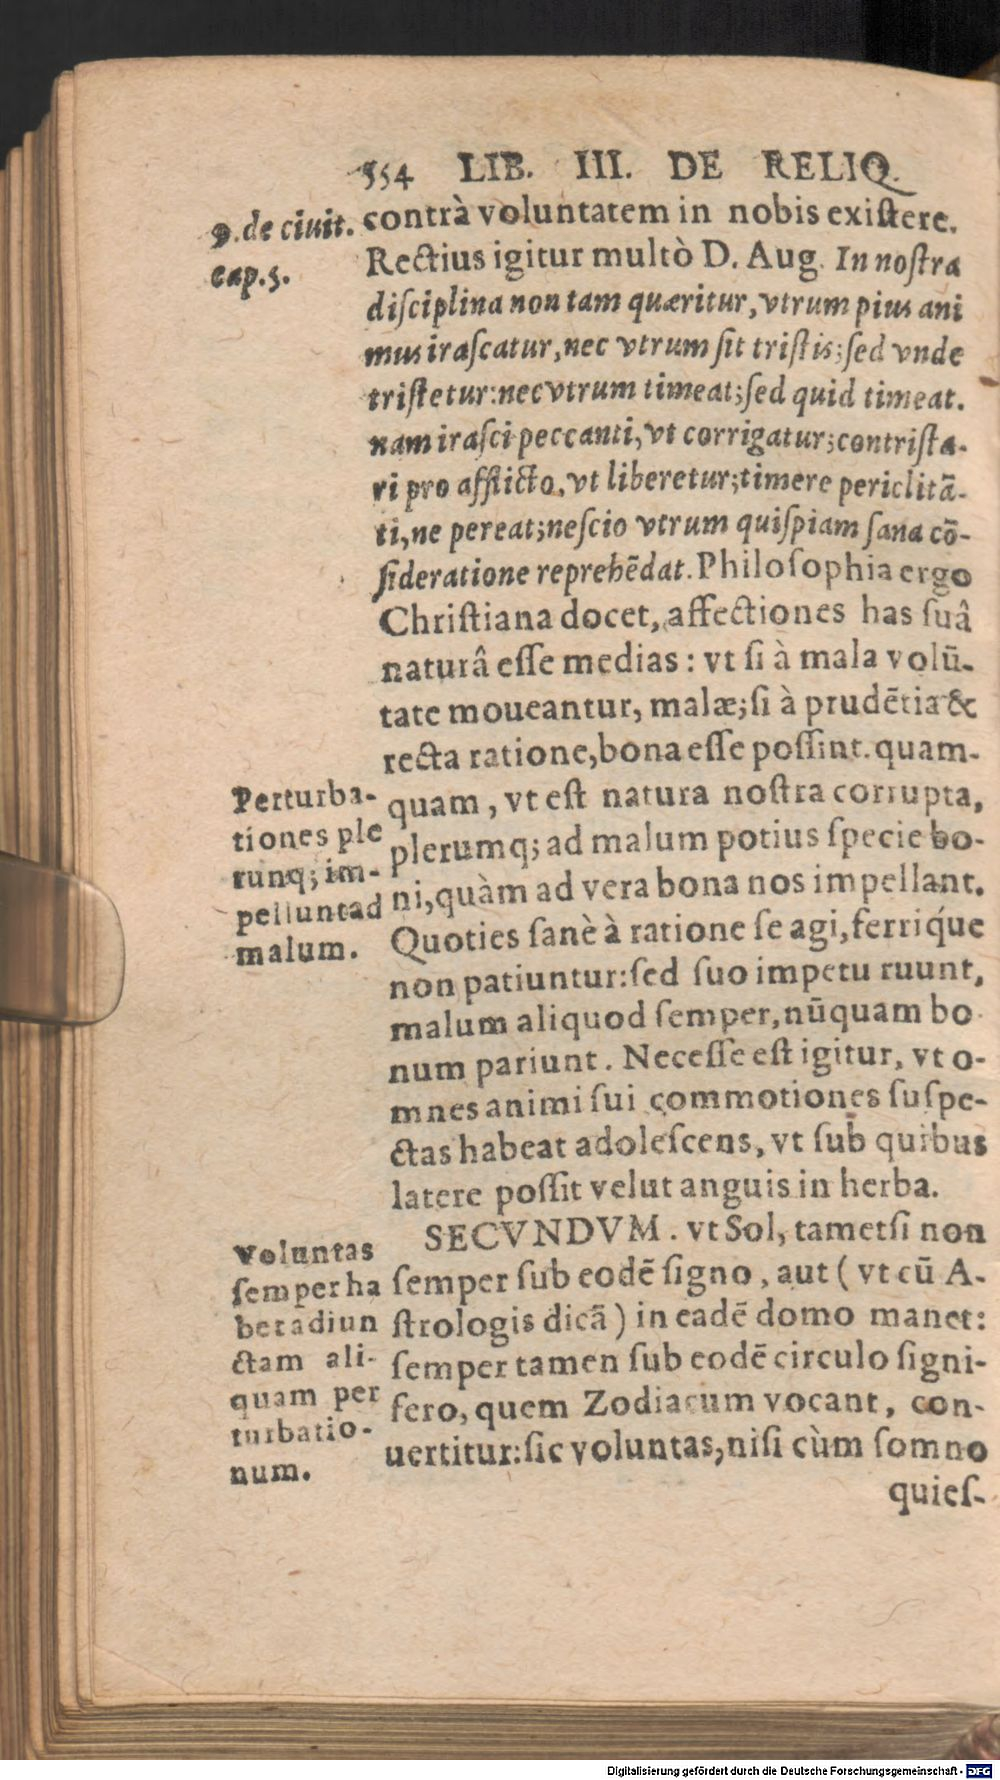 554 LIB. III. DE RELIQ.
9. de ciuit.
cap. 5.
contrà voluntatem in nobis existere.
Rectius igitur multò D. Aug. In nostra
disciplina non tam quæritur, vtrum pius ani
mus irascatur, nec vtrum sit tristis; sed vnde
tristetur: nec vtrum timeat; sed quid timeat.
nam irasci peccanti, vt corrigatur; contrista-
ri pro afflicto, vt liberetur; timere periclitã-
ti, ne pereat; nescio vtrum quispiam sana cõ-
sideratione reprehẽdat. Philosophia ergo
Christiana docet, affectiones has suâ
naturâ esse medias: vt si à mala volũ-
tate moueantur, malæ; si à prudẽtia &
recta ratione, bona esse possint. quam-
quam, vt est natura nostra corrupta,
plerumq; ad malum potius specie bo-
ni, quàm ad vera bona nos impellant.
Quoties sanè à ratione se agi, ferrique
non patiuntur: sed suo impetu ruunt,
malum aliquod semper, nũquam bo
num pariunt. Necesse est igitur, vt o-
mnes animi sui commotiones suspe-
ctas habeat adolescens, vt sub quibus
latere possit velut anguis in herba.
Perturba-
tiones ple
runq; im-
pellunt ad
malum.
SECVNDVM. vt Sol, tametsi non
semper sub eodẽ signo, aut (vt cũ A-
strologis dicã) in eadẽ domo manet:
semper tamen sub eodẽ circulo signi-
fero, quem Zodiacum vocant, con-
uertitur: sic voluntas, nisi cùm somno
Voluntas
semper ha
bet adiun
ctam ali-
quam per
turbatio-
num.
quies-
Digitalisierung gefördert durch die Deutsche Forschungsgemeinschaft - DFG